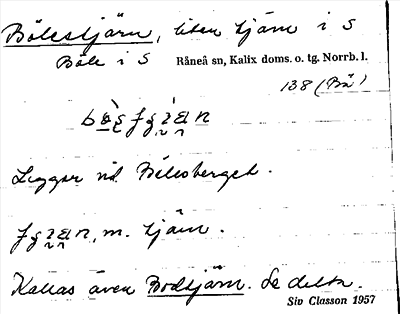 Bölestjärn, liten tjärn i S
Böle i S Råneå sn, Kalix doms. o. tg. Norrb. l.
138 (Bä)
Ligger vid Bölesberget.
m. tjärn.
Kallas även Bodtjärn. Se detta.
Siv Classon 1957